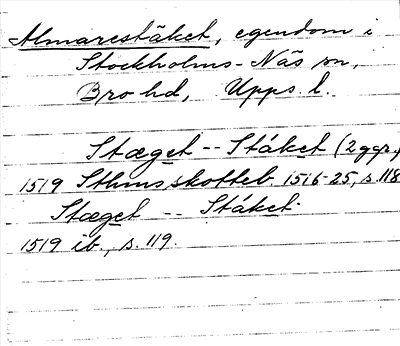 Almarestäket, egendom i
Stockholms-Näs sn,
Bro hd, Upps. l.
Stæget -- Stáket (2 ggr.)
1519 Sthms skotteb. 1516-25, s. 118
Stæget -- Stáket.
1519 ib., s. 119.